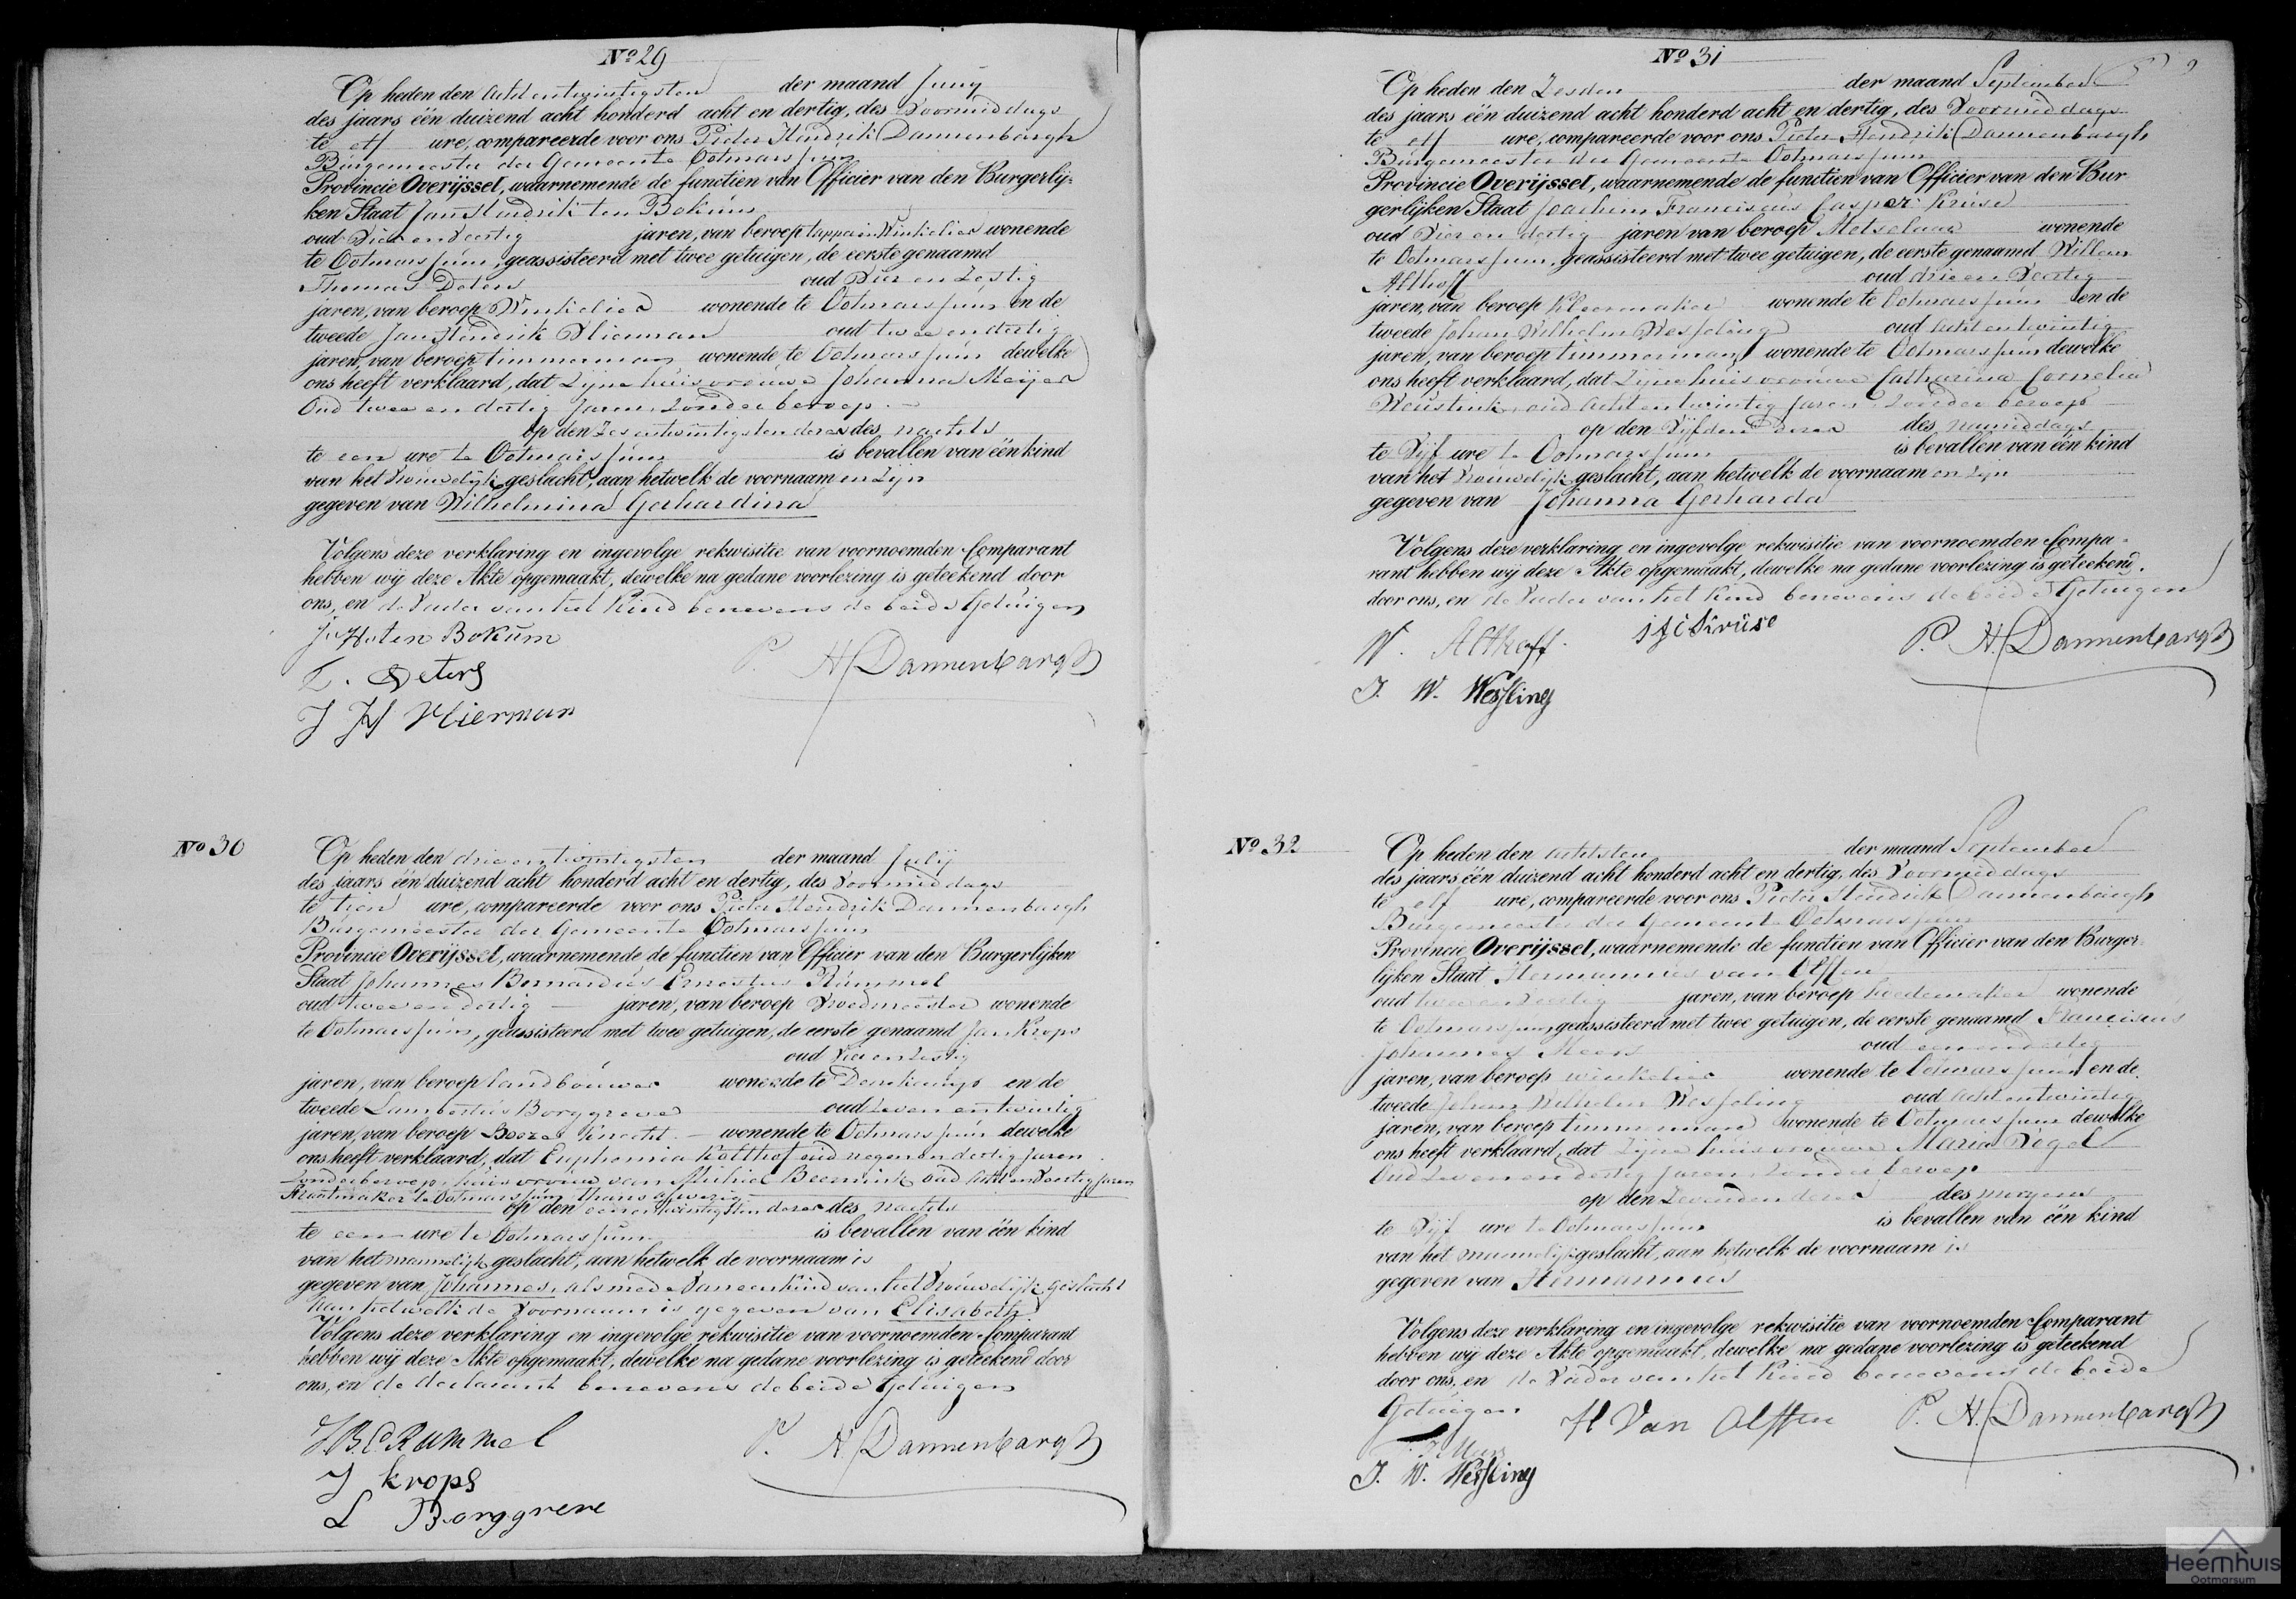 Nº 29
Op heden den achtentwintigsten der maand Junij
des jaars één duizend acht honderd acht en dertig, des Voormiddags
te elf ure, compareerde voor ons Pieter Hendrik Dannenbargh
Burgemeester der Gemeente Ootmarssum
Provincie Overijssel, waarnemende de functien van Officier van den Burgerlij-
ken Staat Jan Hendrik ten Bokum
oud Vier en Veertig jaren, van beroep tapper in Winkelier wonende
te Ootmarssum, geassisteerd met twee getuigen, de eerste genaamd
Thomas Deters oud Vier en Zestig
jaren, van beroep Winkelier wonende te Ootmarssum en de
tweede Jan Hendrik Vlierman oud twee en dertig
jaren, van beroep timmerman wonende te Ootmarssum dewelke
ons heeft verklaard, dat Zijne huisvrouwe Johanna Meijer
Oud twee en dertig Jaren, Zonder beroep
op den Zes entwintigsten dezer des nachts
te een ure te Ootmarssum is bevallen van één kind
van het Vrouwelijk geslacht, aan hetwelk de voornaam en Zijn
gegeven van Wilhelmina Gerhardina
Volgens deze verklaring en ingevolge rekwisitie van voornoemden Comparant
hebben wij deze Akte opgemaakt, dewelke na gedane voorlezing is geteekend door
ons, en de Vader van het Kind benevens de beide Getuigen
J H ten Bokum
T. Deters P. H. Dannenbargh
J H Vlierman
Nº 30
Op heden den drie entwintigsten der maand Julij
des jaars één duizend acht honderd acht en dertig, des Voormiddags
te tien ure, compareerde voor ons Pieter Hendrik Dannenbargh
Burgemeester der Gemeente Ootmarssum
Provincie Overijssel, waarnemende de functien van Officier van den Burgerlijken
Staat Johannes Bernardus Ernestus Rummel
oud twee en dertig jaren, van beroep Vroedmeester wonende
te Ootmarssum, geassisteerd met twee getuigen, de eerste genaamd Jan Krops
oud Vier en Zestig
jaren, van beroep landbouwer wonende te Denekamp en de
tweede Lambertus Borggreve oud Zeven entwintig
jaren, van beroep Boeren knecht wonende te Ootmarssum dewelke
ons heeft verklaard, dat Euphemia Kotthof oud negen en dertig Jaren
Zonder beroep, huisvrouw van Michiel Beernink, oud Acht en Veertig Jaren
te Ootmarssum thans afwezig
op den eenentwintigsten dezer des nachts
te een ure te Ootmarssum is bevallen van één kind
van het mannelijk geslacht, aan hetwelk de voornaam is
gegeven van Johannes, alsmede Van een Kind van het Vrouwelijk geslacht
aan hetwelk de Voornaam is gegeven van Elisabeth
Volgens deze verklaring en ingevolge rekwisitie van voornoemden Comparant
hebben wij deze Akte opgemaakt, dewelke na gedane voorlezing is geteekend door
ons, en de declarant benevens de beide Getuigen
J.B.E Rummel P. H. Dannenbargh
J krops
L Borggreve
Nº 31
Op heden den Zesden der maand September
des jaars één duizend acht honderd acht en dertig, des Voormiddags
te elf ure, compareerde voor ons Pieter Hendrik Dannenbargh
Burgemeester der Gemeente Ootmarssum
Provincie Overijssel, waarnemende de functien van Officier van den Bur-
gerlijken Staat Joachim Franciscus Casper Kruse
oud Vier en dertig jaren van beroep Metselaar wonende
te Ootmarssum, geassisteerd met twee getuigen, de eerste genaamd Willem
Althoff oud drie en Veertig
jaren, van beroep Kleermaker wonende te Ootmarssum en de
tweede Johan Wilhelm Wesseling oud acht entwintig
jaren, van beroep timmerman wonende te Ootmarssum dewelke
ons heeft verklaard, dat Zijne huisvrouwe Catharina Cornelia
Weustink, oud acht entwintig Jaren Zonder beroep
op den Vijfden dezer des namiddags
te Vijf ure te Ootmarssum is bevallen van één kind
van het Vrouwelijk geslacht, aan hetwelk de voornaam en Zijn
gegeven van Johanna Gerharda
Volgens deze verklaring en ingevolge rekwisitie van voornoemden Compa-
rant hebben wij deze Akte opgemaakt, dewelke na gedane voorlezing is geteekend
door ons, en de Vader van het Kind benevens de beide Getuigen
W. Althoff J F C Krüse P. H. Dannenbargh
J. W. Wessling
Nº 32
Op heden den achtsten der maand September
des jaars één duizend acht honderd acht en dertig, des Voormiddags
te elf ure, compareerde voor ons Pieter Hendrik Dannenbargh
Burgemeester der Gemeente Ootmarssum
Provincie Overijssel, waarnemende de functien van Officier van den Burger-
lijken Staat Hermannus van Olffen
oud twee en Veertig jaren, van beroep hoedemaker wonende
te Ootmarssum, geassisteerd met twee getuigen, de eerste genaamd Franciscus
Johannes Meers oud een en dertig
jaren, van beroep winkelier wonende te Ootmarssum en de
tweede Johan Wilhelm Wesseling oud acht entwintig
jaren, van beroep timmerman wonende te Ootmarssum dewelke
ons heeft verklaard, dat Zijne huisvrouwe Maria Vogel
Oud Zeven en dertig Jaren, Zonder beroep
op den Zevenden dezer des morgens
te Vijf ure te Ootmarssum is bevallen van één kind
van het mannelijk geslacht, aan hetwelk de voornaam is
gegeven van Hermannus
Volgens deze verklaring en ingevolge rekwisitie van voornoemden Comparant
hebben wij deze Akte opgemaakt, dewelke na gedane voorlezing is geteekend
door ons, en de Vader van het Kind benevens de beide
Getuigen H Van Olffen P. H. Dannenbargh
J. W. Wessling
Heemhuis
Ootmarsum